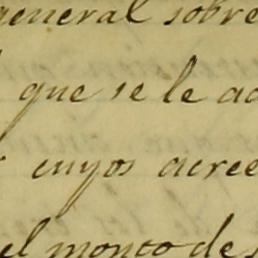 general sobre
que se le ad
cuyos acree
el monto de